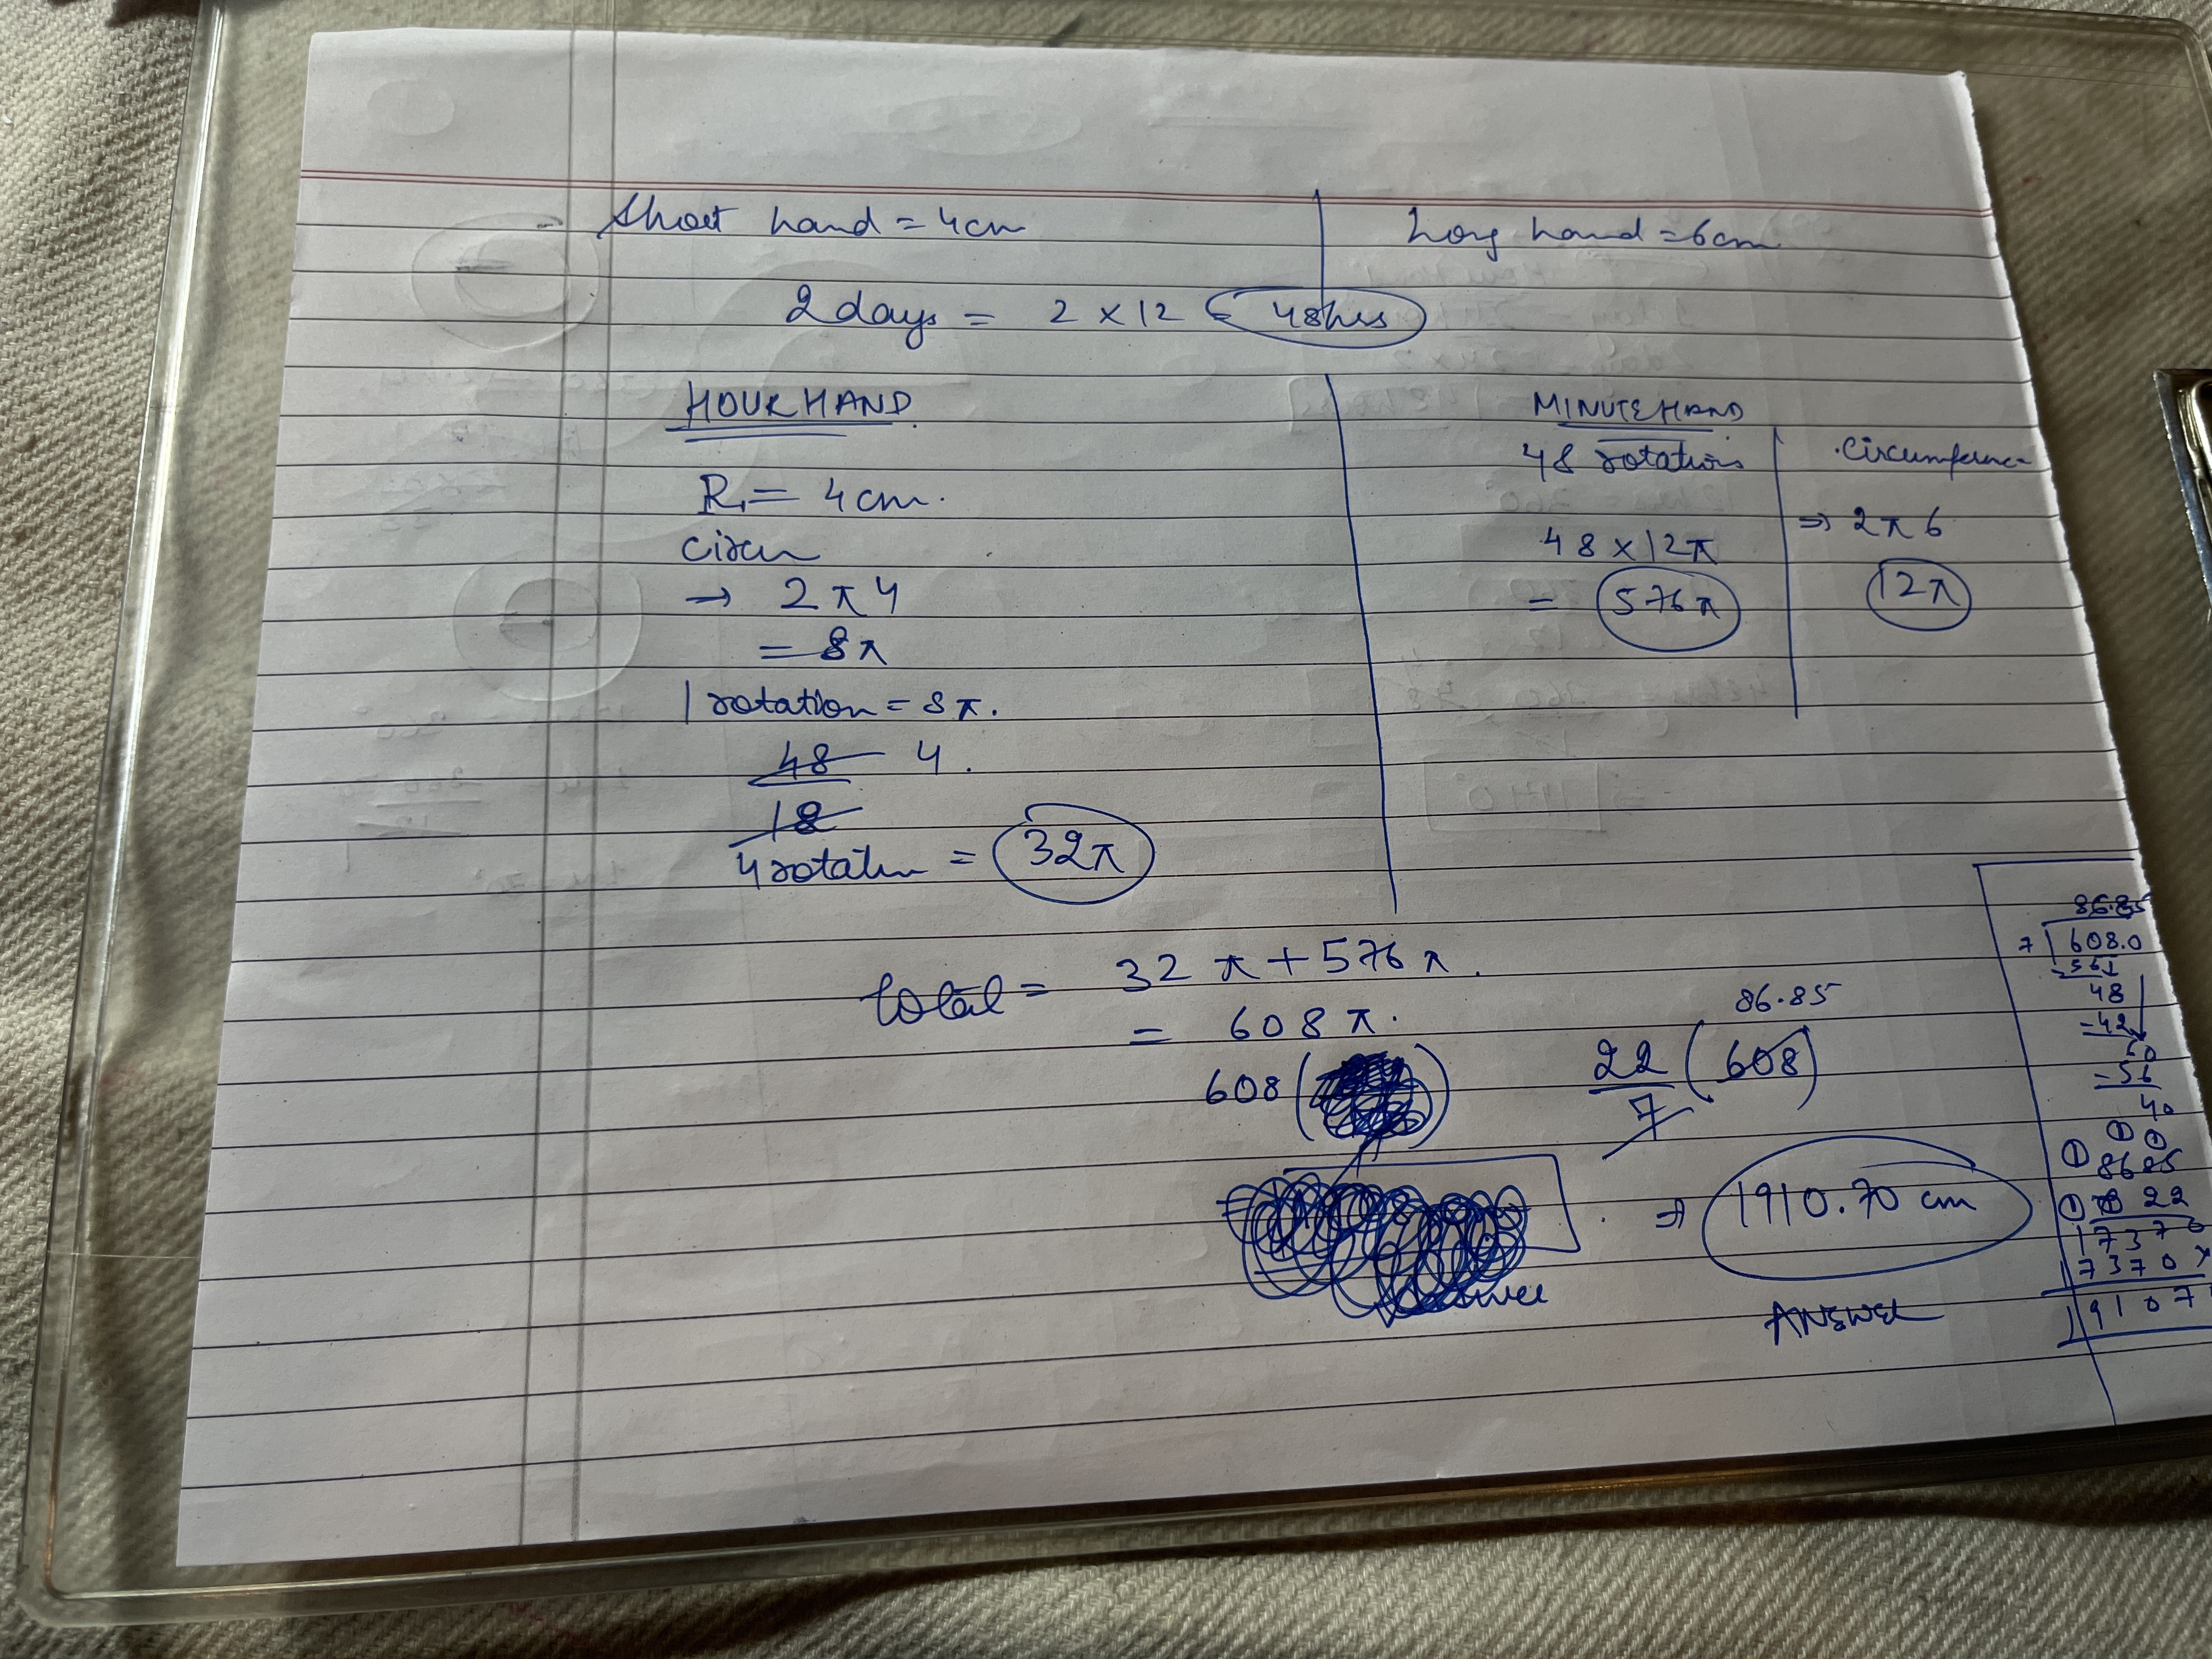 Short hand = 4cm
Long hand = 6cm
2 days = 2 x 12 = 48hrs
HOUR HAND
R = 4 cm.
circu
→ 2π4
= 8π
1 rotation = 8π.
48 4.
12
4 rotation = 32π
MINUTE HAND
48 rotations
48 x 12π
= 576π
Circumference
⇒ 2π6
12π
total = 32π + 576π.
= 608π.
608 ( )
86.85
22/7 (608)
⇒ 1910.70 cm
ANSWER
86.85
7 608.0
-56↓
48
-42
60
-56
40
8685
22
17370
17370x
19107